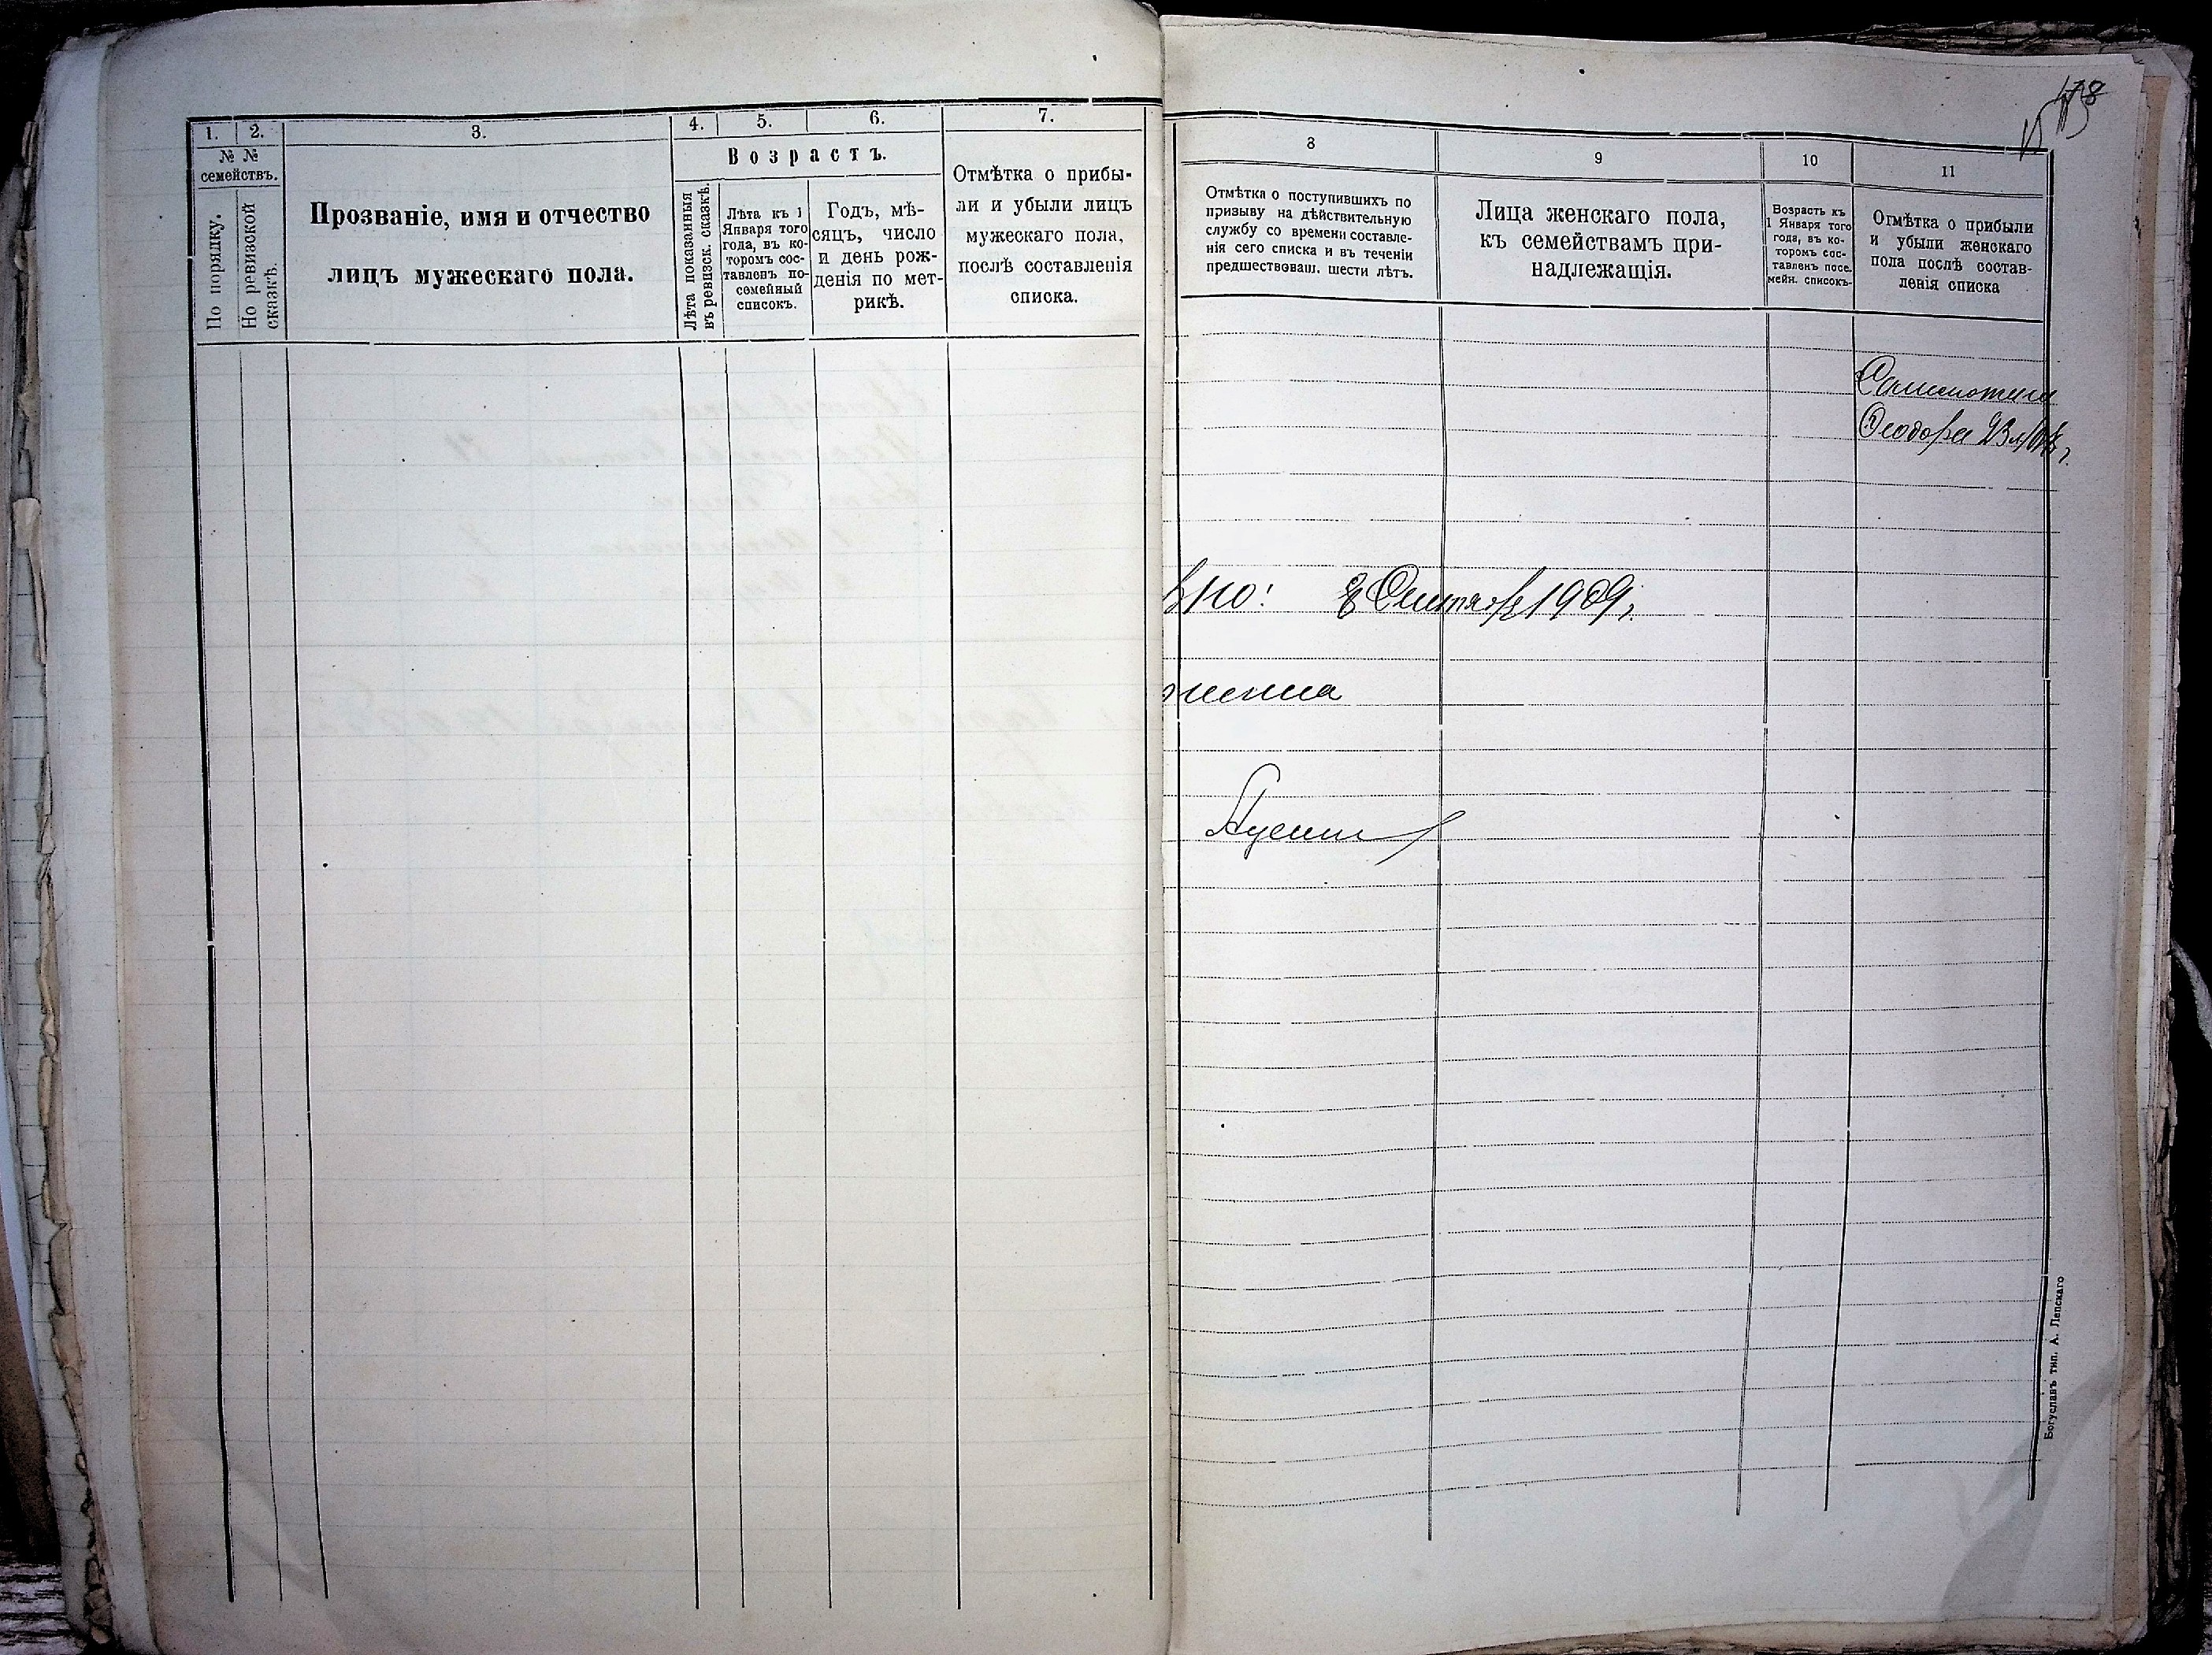 1. 2. 3. 4. 5. 6. 7.
№ №
семействъ.
По порядку.
Но ревизской
сказкѣ.
Прозваніе, имя и отчество
лицъ мужескаго пола.
Возрастъ.
Лѣта показанныя
въ ревизск. сказкѣ.
Лѣта къ 1
Января того
года, въ ко-
торомъ сос-
тавленъ по-
семейный
списокъ.
Годъ, мѣ-
сяцъ, число
и день рож-
денія по мет-
рикѣ.
Отмѣтка о прибы-
ли и убыли лицъ
мужескаго пола,
послѣ составленія
списка.
8 9 10 11
Отмѣтка о поступившихъ по
призыву на дѣйствительную
службу со времени составле-
нія сего списка и въ теченіи
предшествоваш. шести лѣтъ.
Лица женскаго пола,
къ семействамъ при-
надлежащія.
Возрасть къ
1 Января того
года, въ ко-
торомъ сос-
тавленъ посе.
мейн. списокъ-
Отмѣтка о прибыли
и убыли женскаго
пола послѣ состав-
ленія списка
Ѳеодора
вно: 8 Сентября 1909 г.
Богуславъ тип. А. Лепскаго